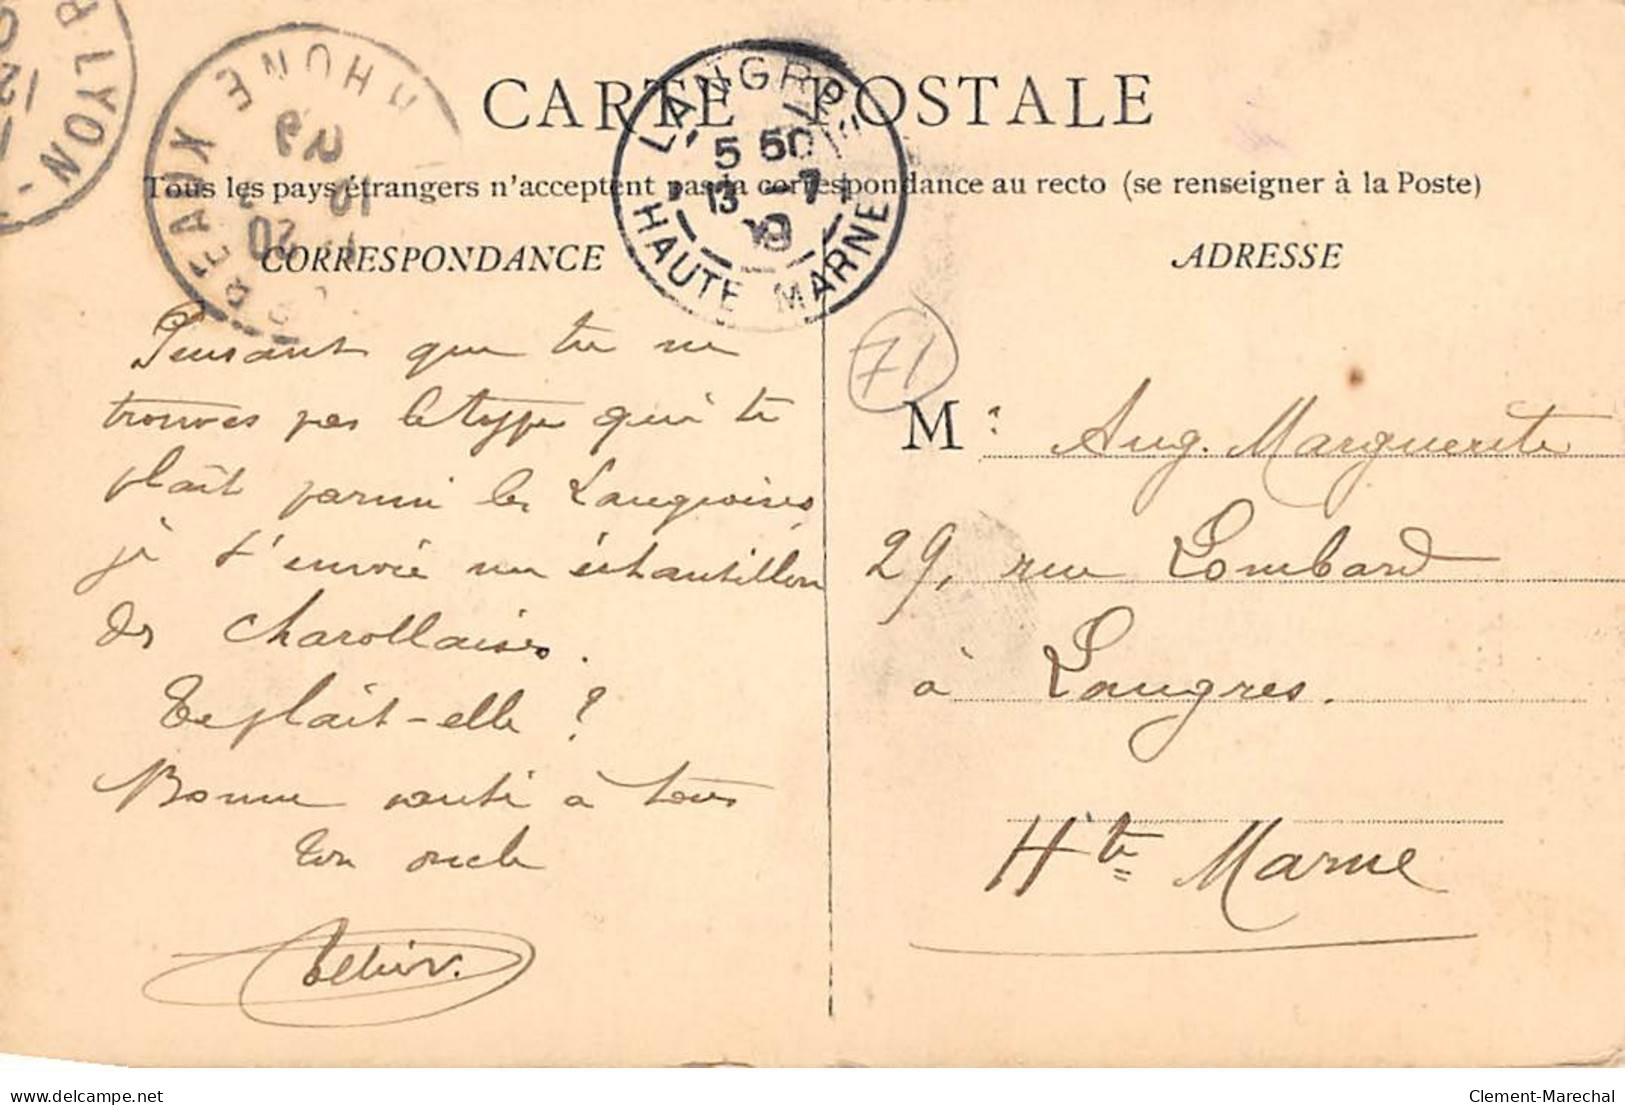 CARTE POSTALE
Tous les pays étrangers n'acceptent pas la correspondance au recto (se renseigner à la Poste)
CORRESPONDANCE
ADRESSE
LYON
RHONE
LANGRES
5 50
13 - 7
HAUTE MARNE
71
Pensant que tu ne
trouves pas le type qui te
plaît parmi les Langroises
je t'envoie un échantillon
des Charollaises.
Te plait-elle ?
Bonne santé à tous
Ton oncle
Mr Aug. Marguerite
29, rue Lombard
à Langres.
Hte Marne
delcampe.net
Clement-Marechal